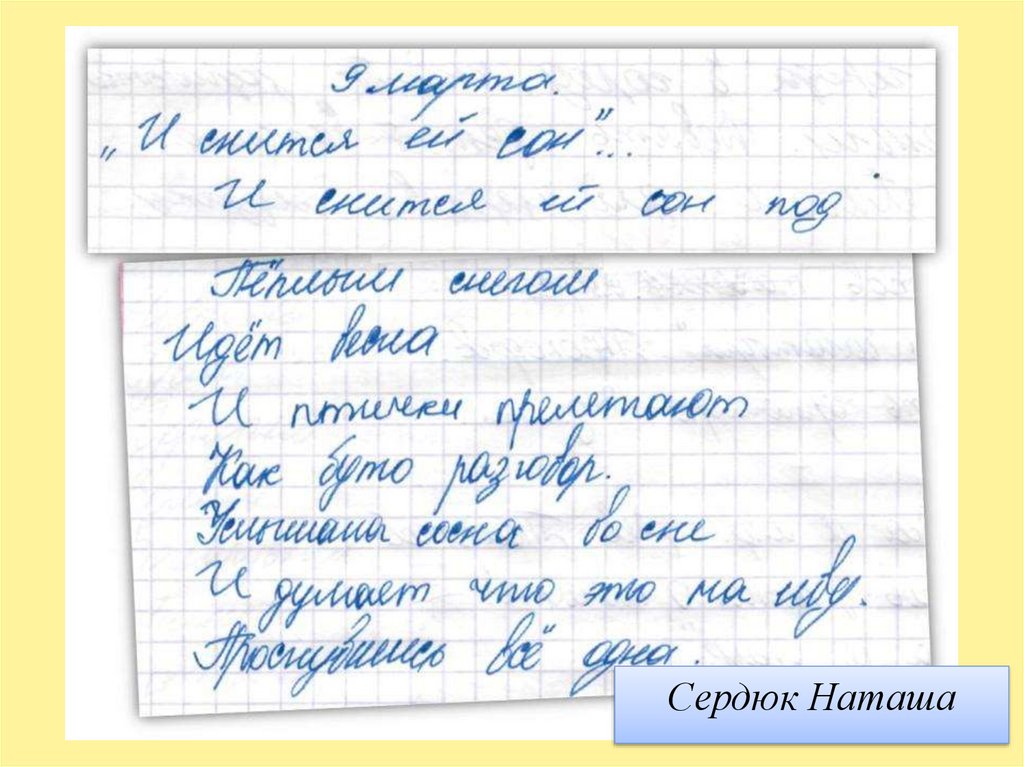 9 марта.
„И снится ей сон"...
И снится ей сон под
Тёплым снегом
Идёт весна
И птички прелетают
Как буто разговор.
Услышала сосна во сне
И думает что это на иву.
Проснувшись всё одна.
Сердюк Наташа